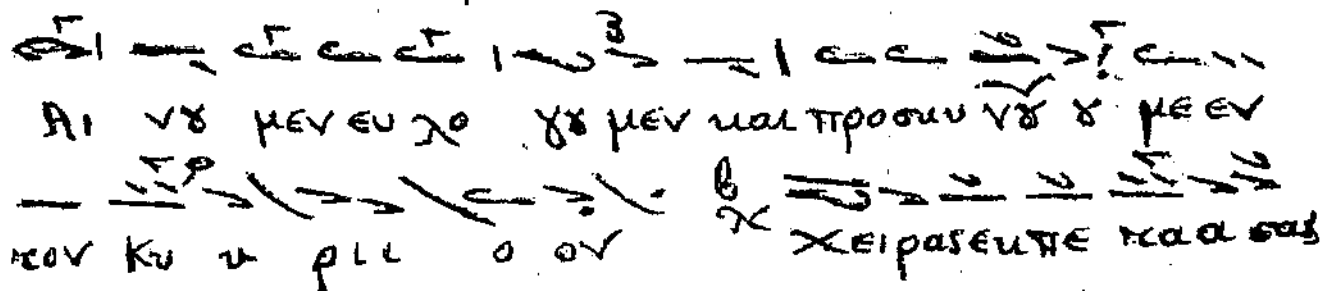 Αι νȣ μεν ευ λο γȣ μεν και προσκυ νȣ ȣ με εν
τον Κυ υ ρι ι ο ον χειρας εκπε τα α σας